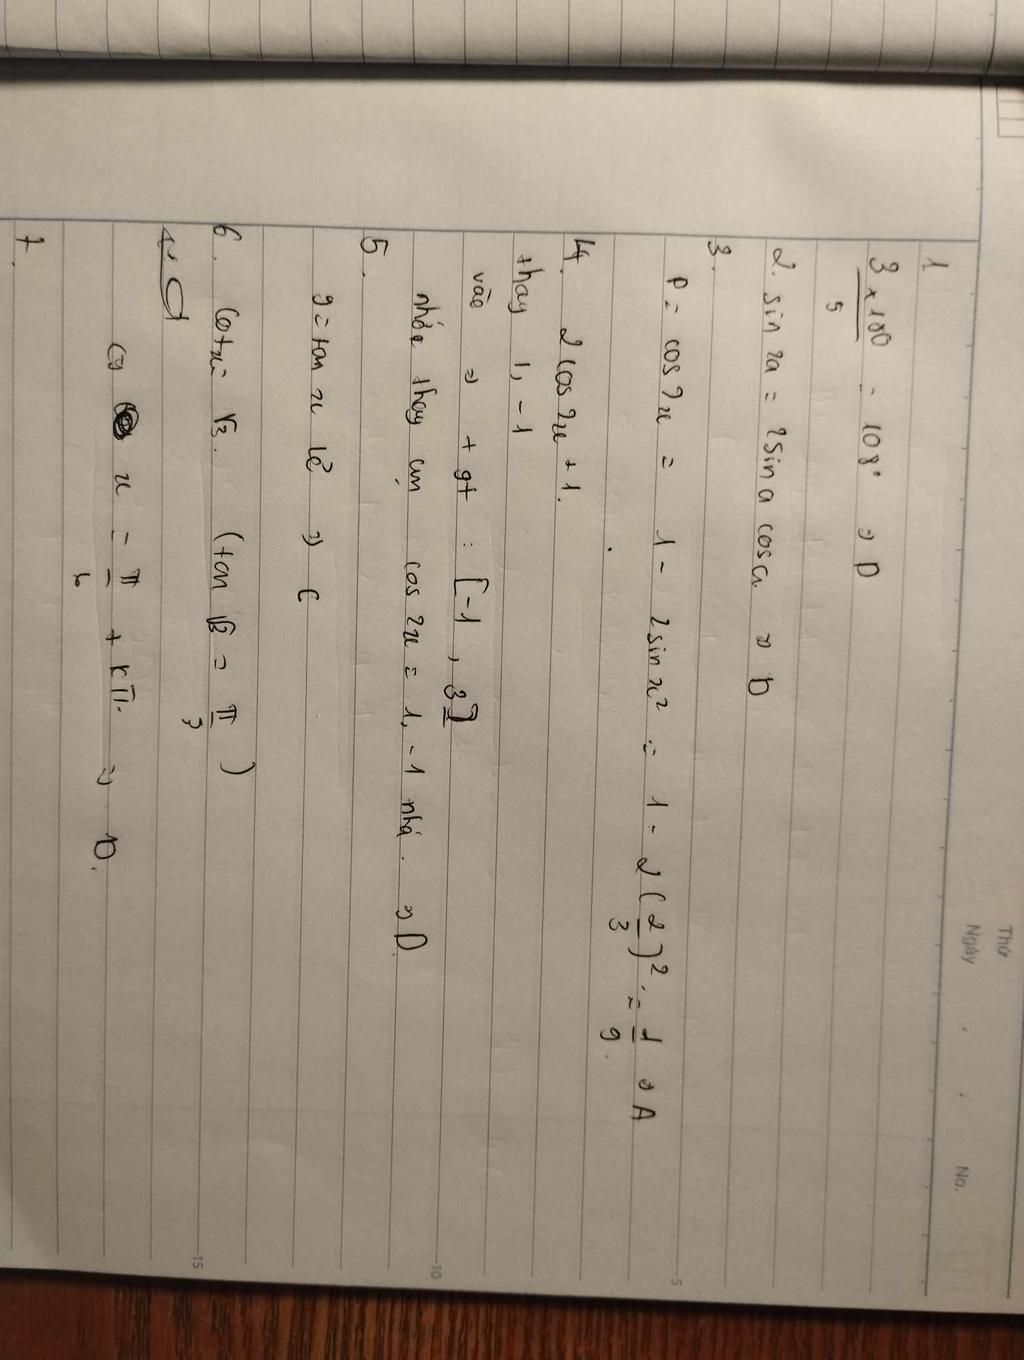 Thứ
Ngày . . No.
1
3 x 180 / 5 = 108° => D
2. sin 2a = 2sin a cos a. => D
3.
P = cos 2x = 1 - 2sin x² = 1 - 2(2/3)² = 1/9. => A
4. 2cos 2x + 1.
thay 1, -1
vào => + gt : [-1, 3]
nhớ thay cụm cos 2x = 1, -1 nhá. => D.
5.
y = tan x lẻ => C
6. Cot x = √3. (tan √3 = π/3)
(=) x = π/6 + kπ. => D.
7.
5
10
15